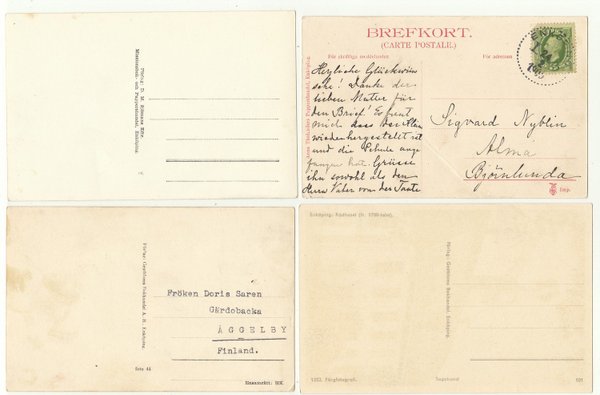 Förlag: D. M.
Musassesbod- och Pappershandel, Enköping.
BREFKORT.
(CARTE POSTALE.)
För skriftliga meddelanden.
För adressen.
Herzliche Glückwün
sche! Danke der
lieben Mutter für
den Brief! Es freut
mich dass
wiederhergestellt ist
und die Schule ange
fangen hat. Grüsse
ihn sowohl als den
Herrn Vater von der Tante
Sigvard Nyblin
Alma
Björnlunda
Imp.
Förlag: Bokhandel A. B. Enköping.
Fröken Doris Saren
Gårdobacka
ÅGGELBY
Finland.
Foto 44
Ensamrätt:
Enköping: Rådhuset (fr. 1700-talet).
Förlag: Bokhandel, Enköping.
Färgfotografi.